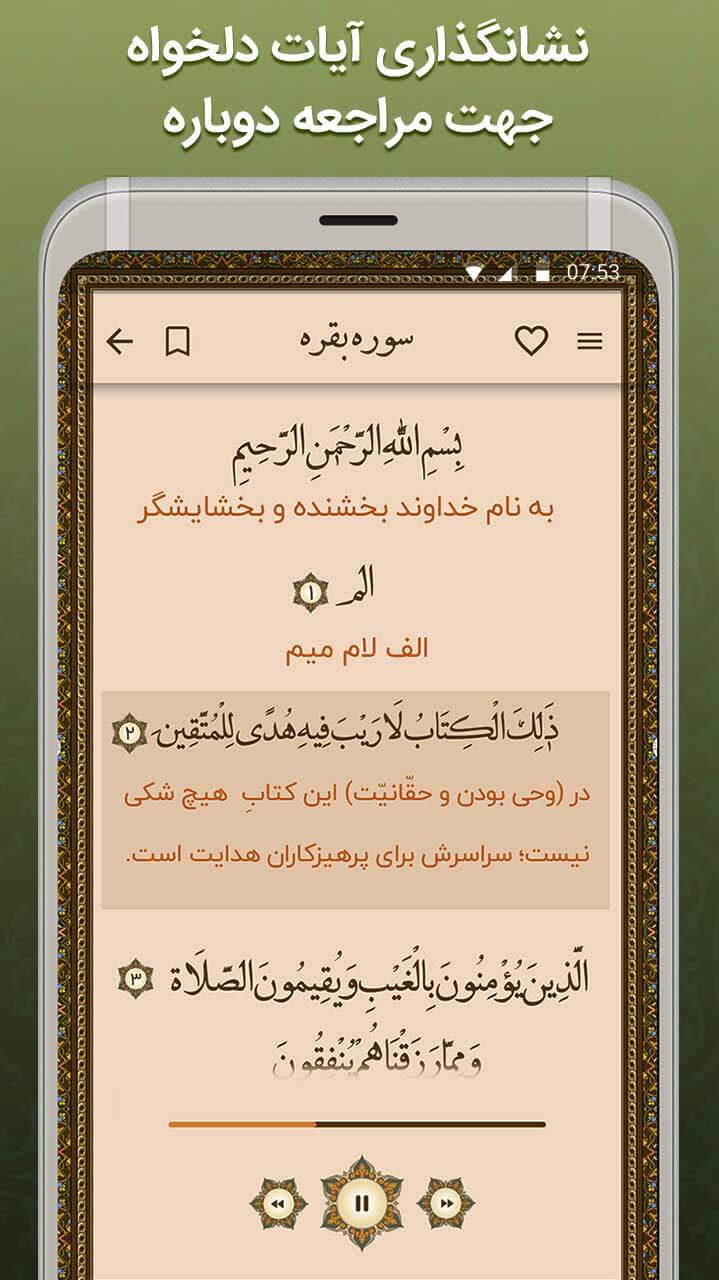 نشانگذاری آیات دلخواه
جهت مراجعه دوباره
07:53
سوره بقره
بِسْمِ اللهِ الرَّحْمَنِ الرَّحِیمِ
به نام خداوند بخشنده و بخشایشگر
الم ۱
الف لام میم
ذَلِكَ الْكِتَابُ لَا رَيْبَ فِيهِ هُدًى لِلْمُتَّقِينَ ۲
در (وحی بودن و حقّانیّت) این کتابِ هیچ شکی
نیست؛ سراسرش برای پرهیزکاران هدایت است.
الَّذِينَ يُؤْمِنُونَ بِالْغَيْبِ وَيُقِيمُونَ الصَّلَاةَ ۳
وَمِمَّا رَزَقْنَاهُمْ يُنْفِقُونَ